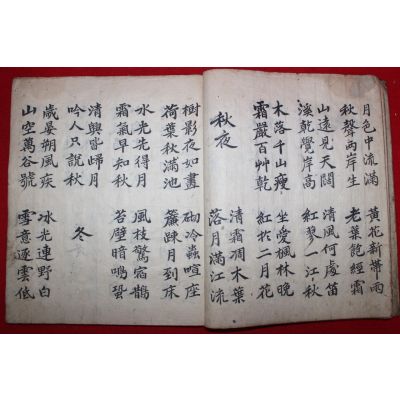 月色中流滿 黃花新帶雨
秋聲兩岸生 老葉飽經霜
山遠見天闊 清風何處笛
溪乾覺岸高 紅蓼一江秋
木落千山瘦 坐愛楓林晚
霜嚴百艸乾 紅於二月花
秋夜
清霜凋木葉
落月滿江流
樹影夜如畫 砌冷蟲喧座
荷葉秋滿池 簾踈月到床
水光先得月 風枝驚宿鵲
霜氣早知秋 苔壁暗鳴蛩
清興皆歸月
吟人只說秋
冬
歲晏朔風疾 氷光連野白
山空萬谷號 雪意逐雲低